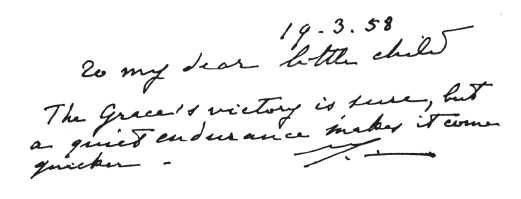 19-3.58
To my dear little child
The Grace's victory is sure, but
a quiet endurance makes it come
quicker -